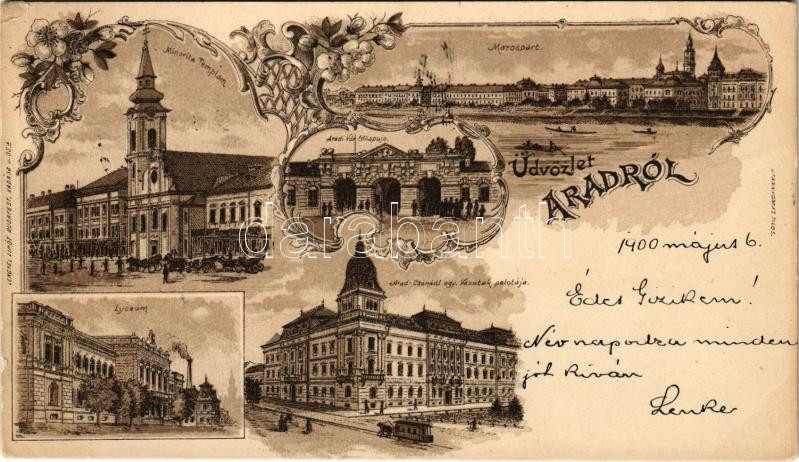 Minorita Templán
Marospart.
Aradi Vár főkapuja.
Üdvözlet
ARADRÓL
darabanth
1900 május 6.
Arad-Csanádi egy. Vasutak palotája.
Édes Gizikém!
Lyceum
Névnapodra minden
jót kíván
Lenke